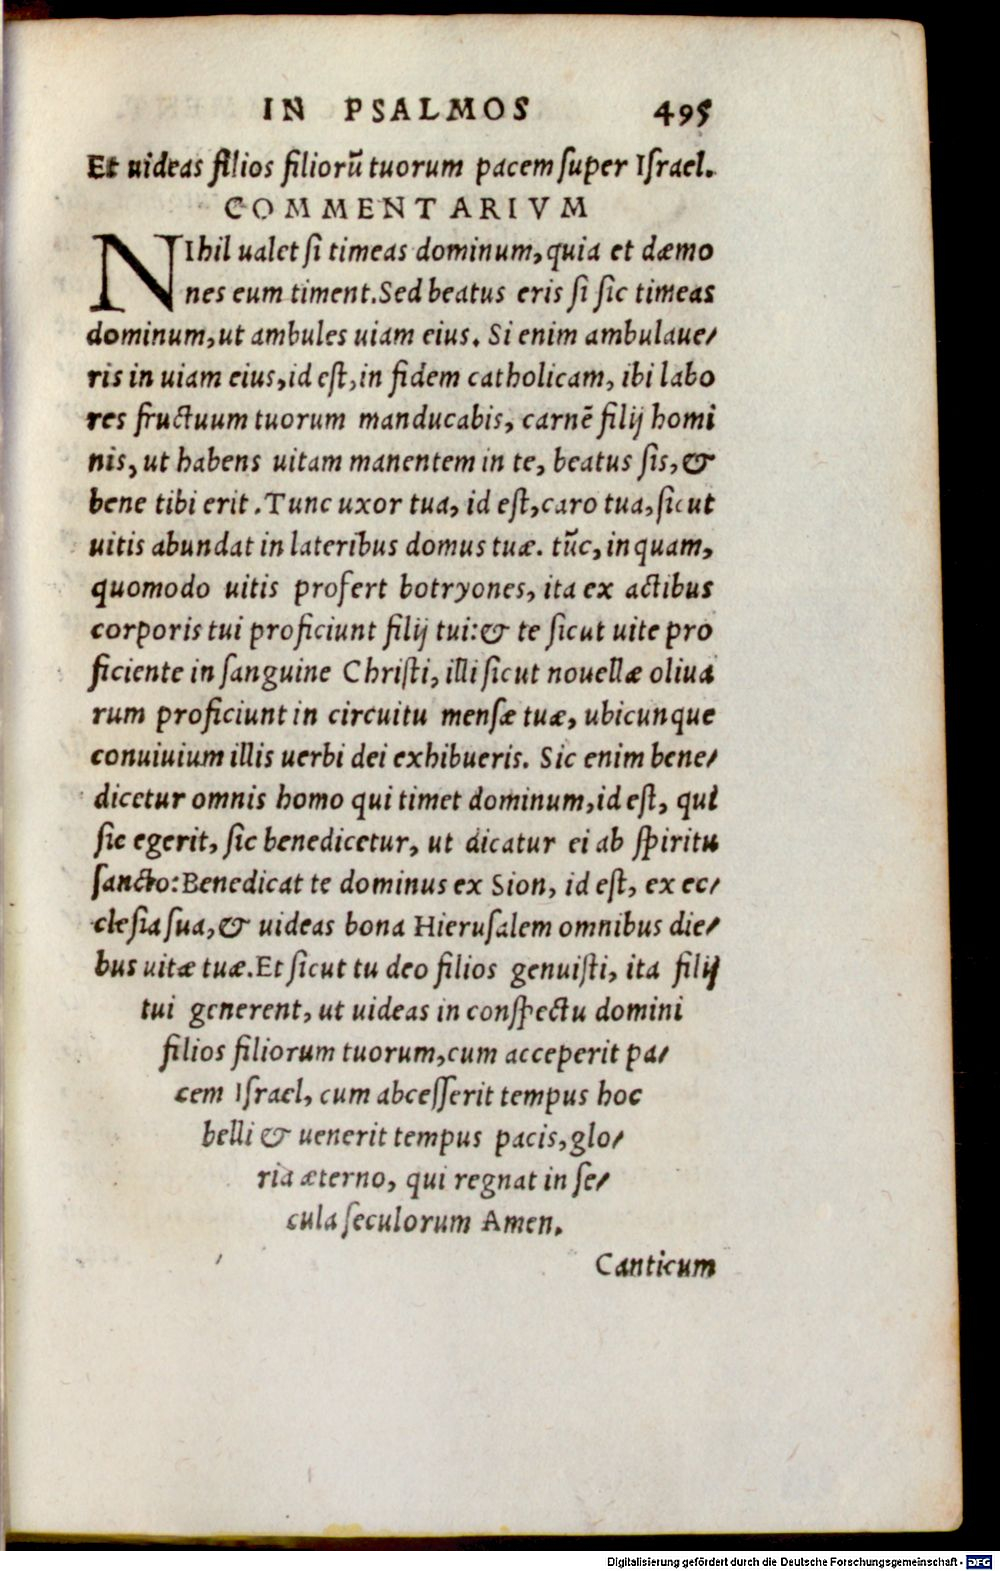 IN PSALMOS 495
Et uideas filios filiorũ tuorum pacem ſuper Iſrael.
COMMENTARIVM
NIhil ualet ſi timeas dominum, quia et dæmo
nes eum timent. Sed beatus eris ſi ſic timeas
dominum, ut ambules uiam eius. Si enim ambulaue/
ris in uiam eius, id eſt, in fidem catholicam, ibi labo
res fructuum tuorum manducabis, carnẽ filij homi
nis, ut habens uitam manentem in te, beatus ſis, &
bene tibi erit. Tunc uxor tua, id eſt, caro tua, ſicut
uitis abundat in lateribus domus tuæ. tũc, inquam,
quomodo uitis profert botryones, ita ex actibus
corporis tui proficiunt filij tui: & te ſicut uite pro
ficiente in ſanguine Chriſti, illi ſicut nouellæ oliua
rum proficiunt in circuitu menſæ tuæ, ubicunque
conuiuium illis uerbi dei exhibueris. Sic enim bene/
dicetur omnis homo qui timet dominum, id eſt, qui
ſic egerit, ſic benedicetur, ut dicatur ei ab ſpiritu
ſancto: Benedicat te dominus ex Sion, id eſt, ex ec/
cleſia ſua, & uideas bona Hieruſalem omnibus die/
bus uitæ tuæ. Et ſicut tu deo filios genuiſti, ita filij
tui generent, ut uideas in conſpectu domini
filios filiorum tuorum, cum acceperit pa/
cem Iſrael, cum abceſſerit tempus hoc
belli & uenerit tempus pacis, glo/
ria æterno, qui regnat in ſe/
cula ſeculorum Amen.
Canticum
Digitalisierung gefördert durch die Deutsche Forschungsgemeinschaft - DFG